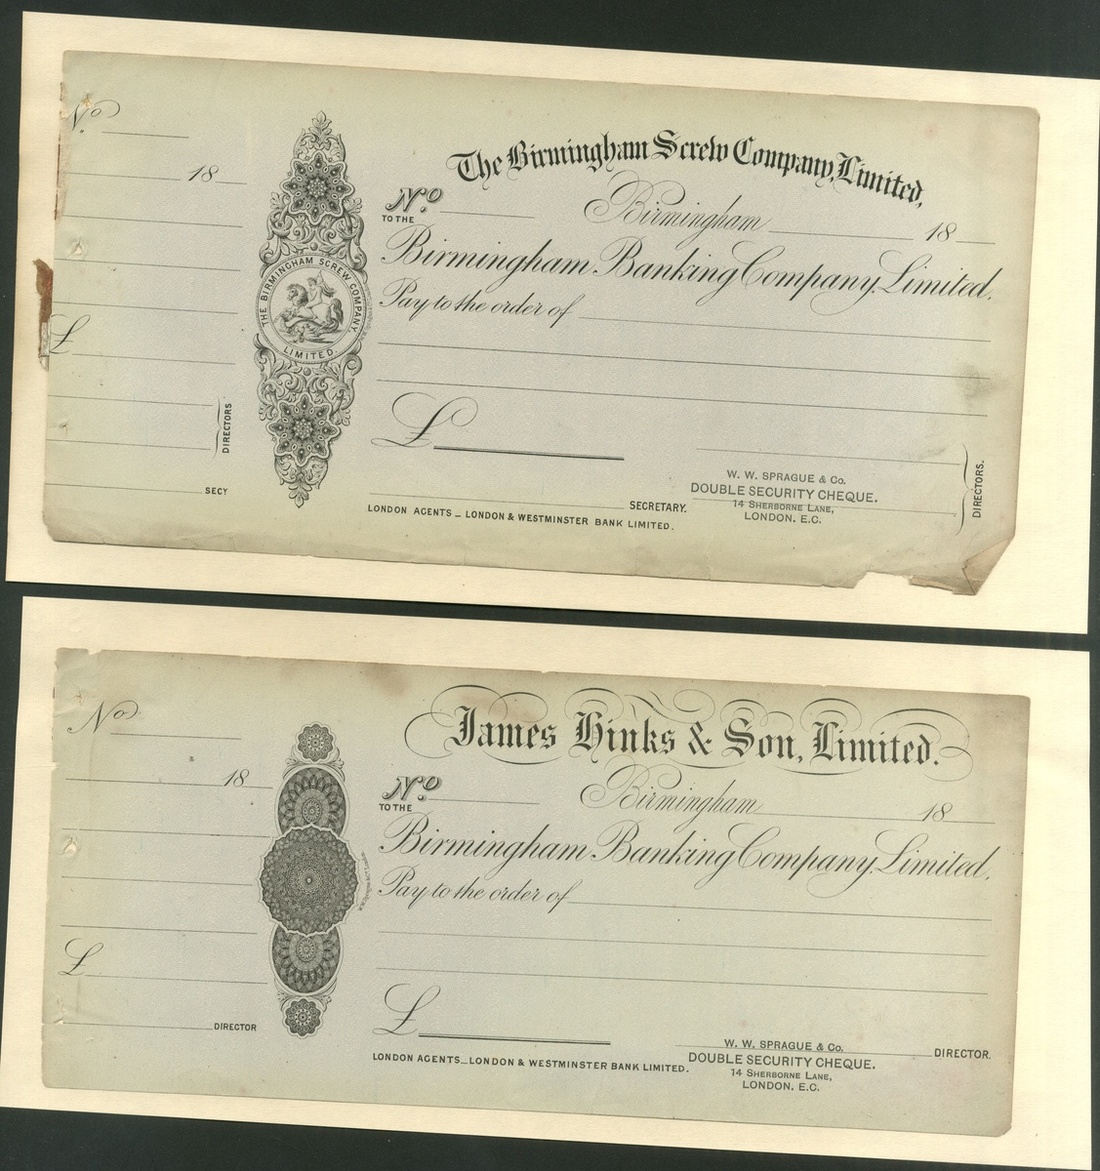 No
18
£
DIRECTORS
SECY
THE BIRMINGHAM SCREW COMPANY,
LIMITED.
The Birmingham Screw Company, Limited,
No
Birmingham 18
TO THE
Birmingham Banking Company, Limited.
Pay to the order of
£
DIRECTORS.
SECRETARY.
LONDON AGENTS _ LONDON & WESTMINSTER BANK LIMITED.
W. W. SPRAGUE & Co.
DOUBLE SECURITY CHEQUE.
14 SHERBORNE LANE,
LONDON. E.C.
No
18
£
DIRECTOR
James Hinks & Son, Limited.
No
Birmingham 18
TO THE
Birmingham Banking Company, Limited.
Pay to the order of
£
DIRECTOR.
LONDON AGENTS _ LONDON & WESTMINSTER BANK LIMITED.
W. W. SPRAGUE & Co.
DOUBLE SECURITY CHEQUE.
14 SHERBORNE LANE,
LONDON. E.C.